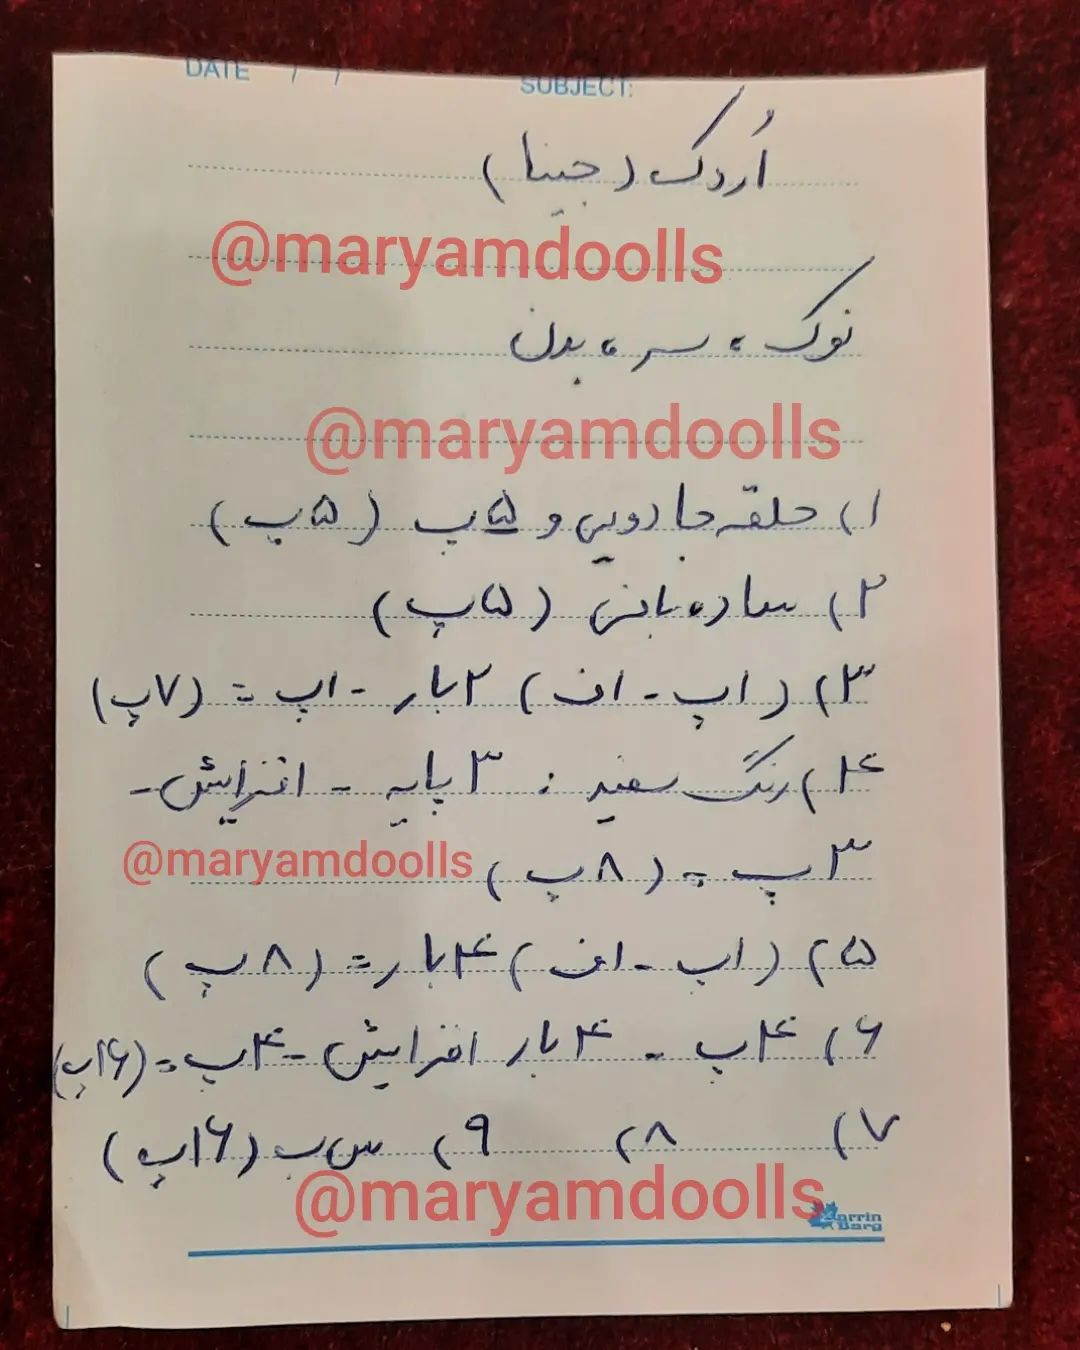 DATE / /
SUBJECT:
اُردک (جینا)
@maryamdoolls
نوک، سر، بدن
@maryamdoolls
۱) حلقه جادویی و ۵پ (۵پ)
۲) ساده بافی (۵پ)
۳) (۱پ - اف) ۲بار - ۱پ = (۷پ)
۴) رنگ سفید : ۳پایه - افزایش -
۳پ = (۸پ)
@maryamdoolls
۵) (۱پ - اف) ۴بار = (۸پ)
۶) ۴پ - ۴بار افزایش - ۴پ = (۱۶پ)
۷) ۸) ۹) س ب (۱۶پ)
@maryamdoolls
Zarrin Barg